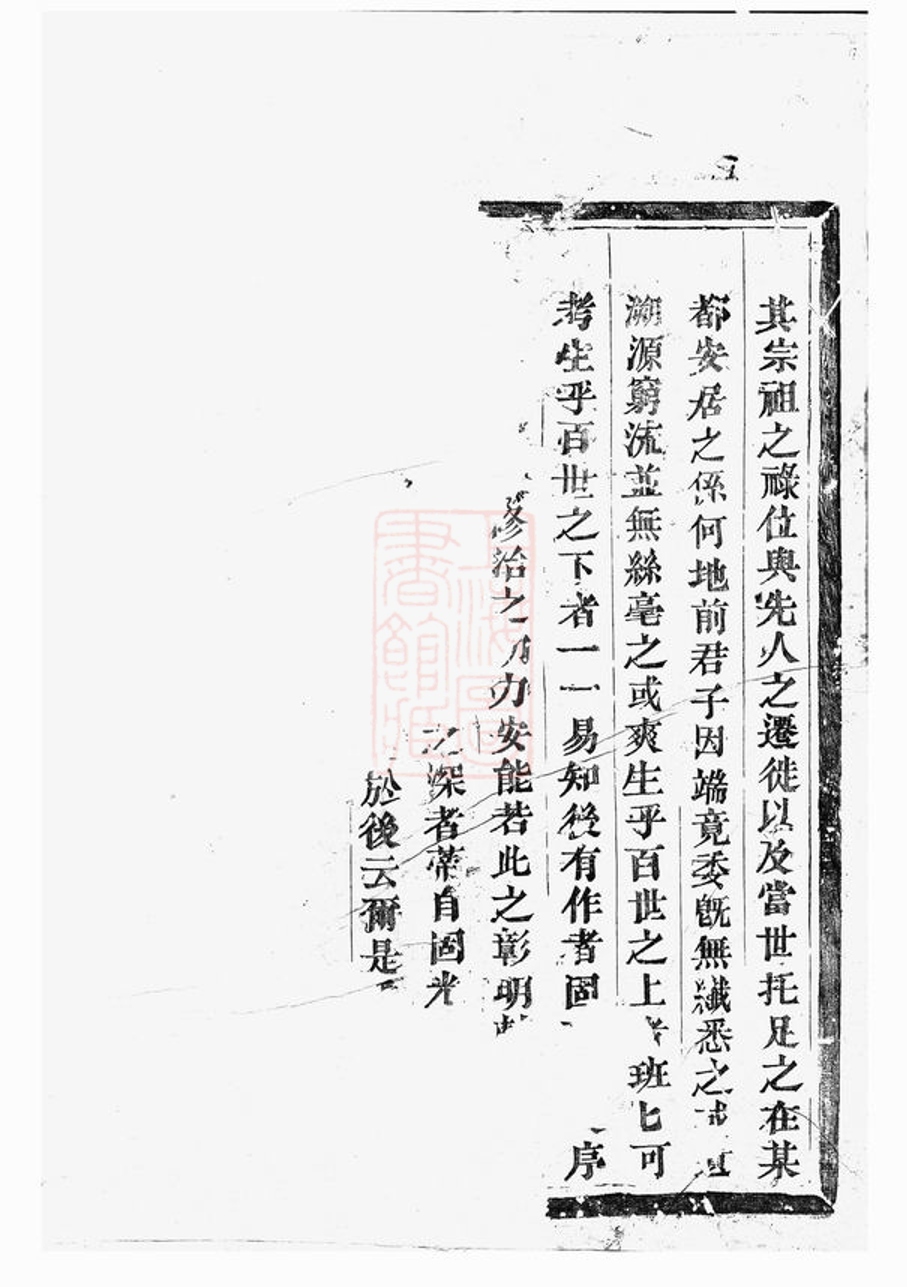 其宗祖之祿位與先人之遷徙以及當世托足之在某
都安居之係何地前君子因端竟委旣無纎悉之
溯源窮流並無絲毫之或爽生乎百世之上者班班可
考生乎百世之下者一一易知後有作者固序
修治之功力安能若此之彰明
之深者蒂自固光
於後云爾是
上海圖書館藏